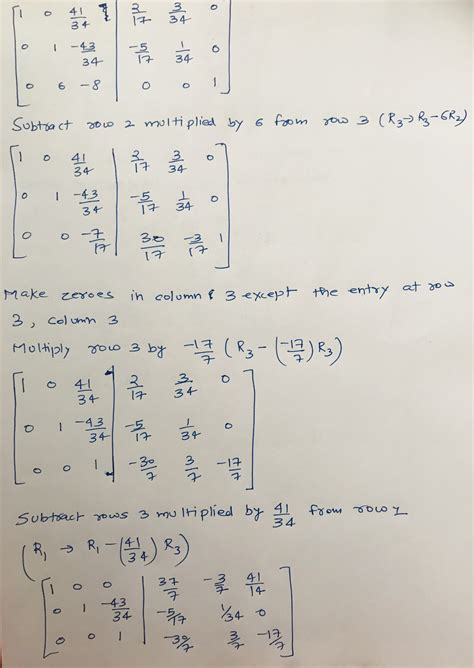 [1 0 41/34 | 2/17 3/34 0
0 1 -43/34 | -5/17 1/34 0
0 6 -8 | 0 0 1]
Subtract row 2 multiplied by 6 from row 3 (R3→R3-6R2)
[1 0 41/34 | 2/17 3/34 0
0 1 -43/34 | -5/17 1/34 0
0 0 -7/17 | 30/17 -3/17 1]
Make zeroes in column 3 except the entry at row
3, column 3
Multiply row 3 by -17/7 (R3-(-17/7)R3)
[1 0 41/34 | 2/17 3/34 0
0 1 -43/34 | -5/17 1/34 0
0 0 1 | -30/7 3/7 -17/7]
Subtract rows 3 multiplied by 41/34 from row 1
(R1 → R1-(41/34)R3)
[1 0 0 | 37/7 -3/7 41/14
0 1 -43/34 | -5/17 1/34 0
0 0 1 | -30/7 3/7 -17/7]